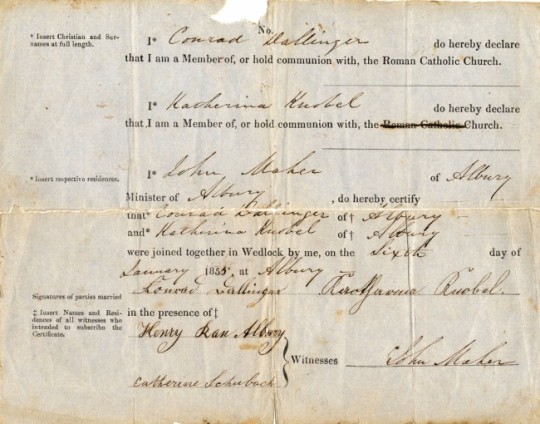 No.
* Insert Christian and Sur-
names at full length.
I* Conrad Dallinger do hereby declare
that I am a Member of, or hold communion with, the Roman Catholic Church.
I* Katherina Knobel do hereby declare
that I am a Member of, or hold communion with, the Roman Catholic Church.
* Insert respective residences.
I* John Maher of Albury
Minister of Albury , do hereby certify
that* Conrad Dallinger of† Albury
and* Katherina Knobel of† Albury
were joined together in Wedlock by me, on the Sixth day of
January 1855, at Albury
Signatures of parties married
Conrad Dallinger Knobel.
‡ Insert Names and Resi-
dences of all witnesses who
intended to subscribe the
Certificate.
in the presence of‡
Henry Rau Albury
Witnesses
John Maher
Catherine Schubach